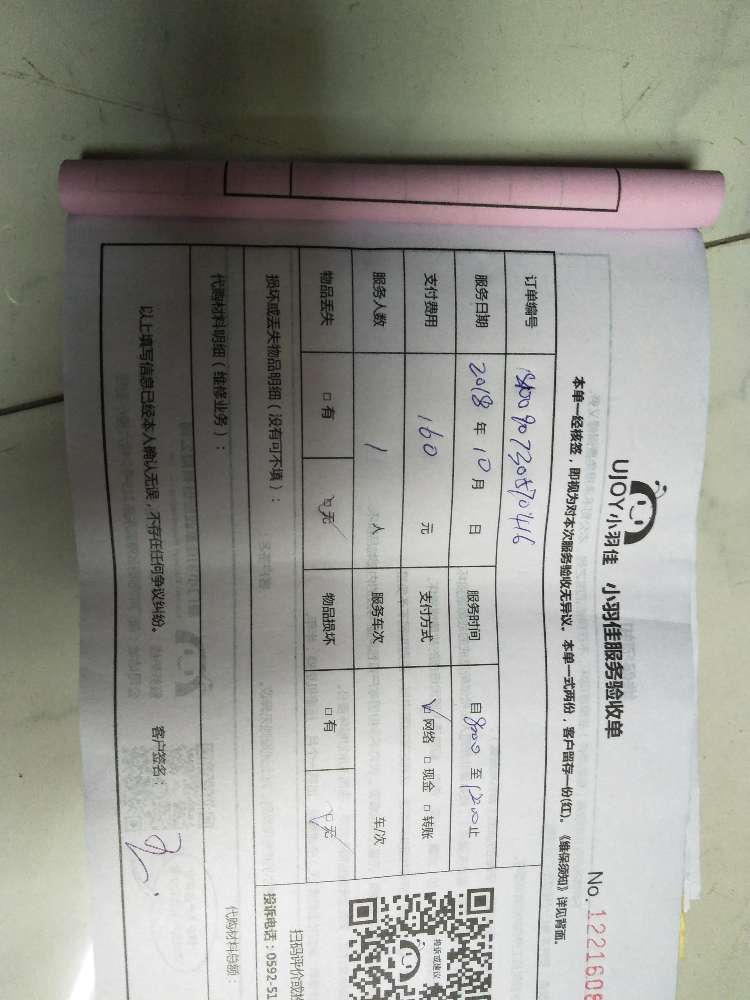 UJOY小羽佳 小羽佳服务验收单
No. 1221608
本单一经核签，即视为对本次服务验收无异议。本单一式两份，客户留存一份(红)。《维保须知》详见背面。
订单编号
服务日期 2018 年 10 月 日 服务时间 自 8:00 至 12:00 止
支付费用 160 元 支付方式 □ 网络 □ 现金 □ 转账
服务人数 1 人 服务车次 车/次
物品丢失 □ 有 □ 无 物品损坏 □ 有 □ 无
损坏或丢失物品明细（没有可不填）：
代购材料明细（维修业务）：
代购材料总额：
以上填写信息已经本人确认无误，不存在任何争议纠纷。 客户签名：
投诉或建议
扫码评价或投
投诉电话：0592-51